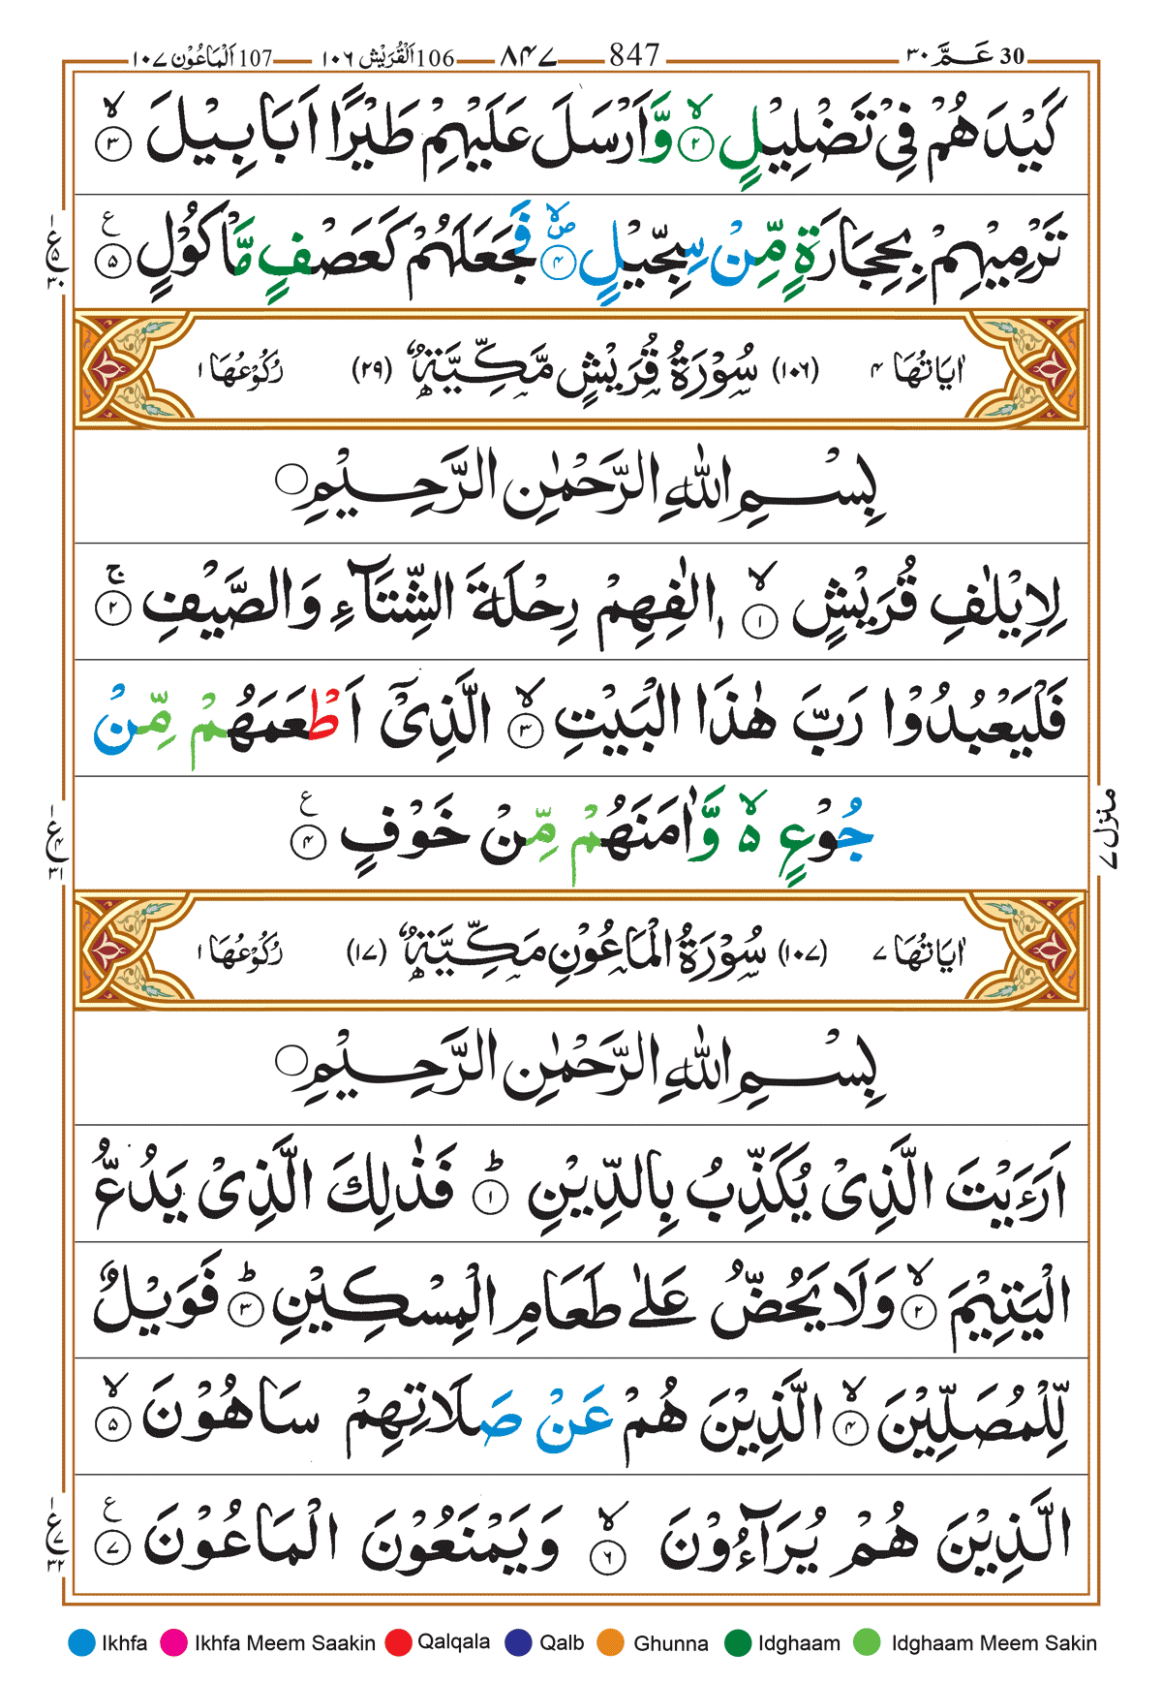 30 عَـمَّ ٣٠ 847 ٨٤٧ 106 اَلْقُرَيْش ١٠٦ 107 اَلْمَاعُوْن ١٠٧
كَيْدَهُمْ فِيْ تَضْلِيْلٍ ۙ‏﴿۲﴾ وَّاَرْسَلَ عَلَيْهِمْ طَيْرًا اَبَابِيْلَ ۙ‏﴿۳﴾
تَرْمِيْهِمْ بِحِجَارَةٍ مِّنْ سِجِّيْلٍ ۙ ۪‏﴿۴﴾ فَجَعَلَهُمْ كَعَصْفٍ مَّاْكُوْلٍ ‏﴿۵﴾ ع
اٰيَاتُهَا ۴ (۱۰۶) سُوْرَةُ قُرَيْشٍ مَّكِّيَّةٌ (۲۹) رُكُوْعُهَا ۱
بِسْمِ اللّٰهِ الرَّحْمٰنِ الرَّحِيْمِ ○
لِاِيْلٰفِ قُرَيْشٍ ۙ‏﴿۱﴾ اٖلٰفِهِمْ رِحْلَةَ الشِّتَآءِ وَالصَّيْفِ ۚ‏﴿۲﴾
فَلْيَعْبُدُوْا رَبَّ هٰذَا الْبَيْتِ ۙ‏﴿۳﴾ الَّذِيْٓ اَطْعَمَهُمْ مِّنْ
جُوْعٍ ۙ۬ وَّاٰمَنَهُمْ مِّنْ خَوْفٍ ‏﴿۴﴾ ع
منزل ۷
اٰيَاتُهَا ۷ (۱۰۷) سُوْرَةُ الْمَاعُوْنِ مَكِّيَّةٌ (۱۷) رُكُوْعُهَا ۱
بِسْمِ اللّٰهِ الرَّحْمٰنِ الرَّحِيْمِ ○
اَرَءَيْتَ الَّذِيْ يُكَذِّبُ بِالدِّيْنِ ؕ‏﴿۱﴾ فَذٰلِكَ الَّذِيْ يَدُعُّ
الْيَتِيْمَ ۙ‏﴿۲﴾ وَلَا يَحُضُّ عَلٰى طَعَامِ الْمِسْكِيْنِ ؕ‏﴿۳﴾ فَوَيْلٌ
لِّلْمُصَلِّيْنَ ۙ‏﴿۴﴾ الَّذِيْنَ هُمْ عَنْ صَلَاتِهِمْ سَاهُوْنَ ۙ‏﴿۵﴾
الَّذِيْنَ هُمْ يُرَآءُوْنَ ۙ‏﴿۶﴾ وَيَمْنَعُوْنَ الْمَاعُوْنَ ‏﴿۷﴾ ع
Ikhfa Ikhfa Meem Saakin Qalqala Qalb Ghunna Idghaam Idghaam Meem Sakin